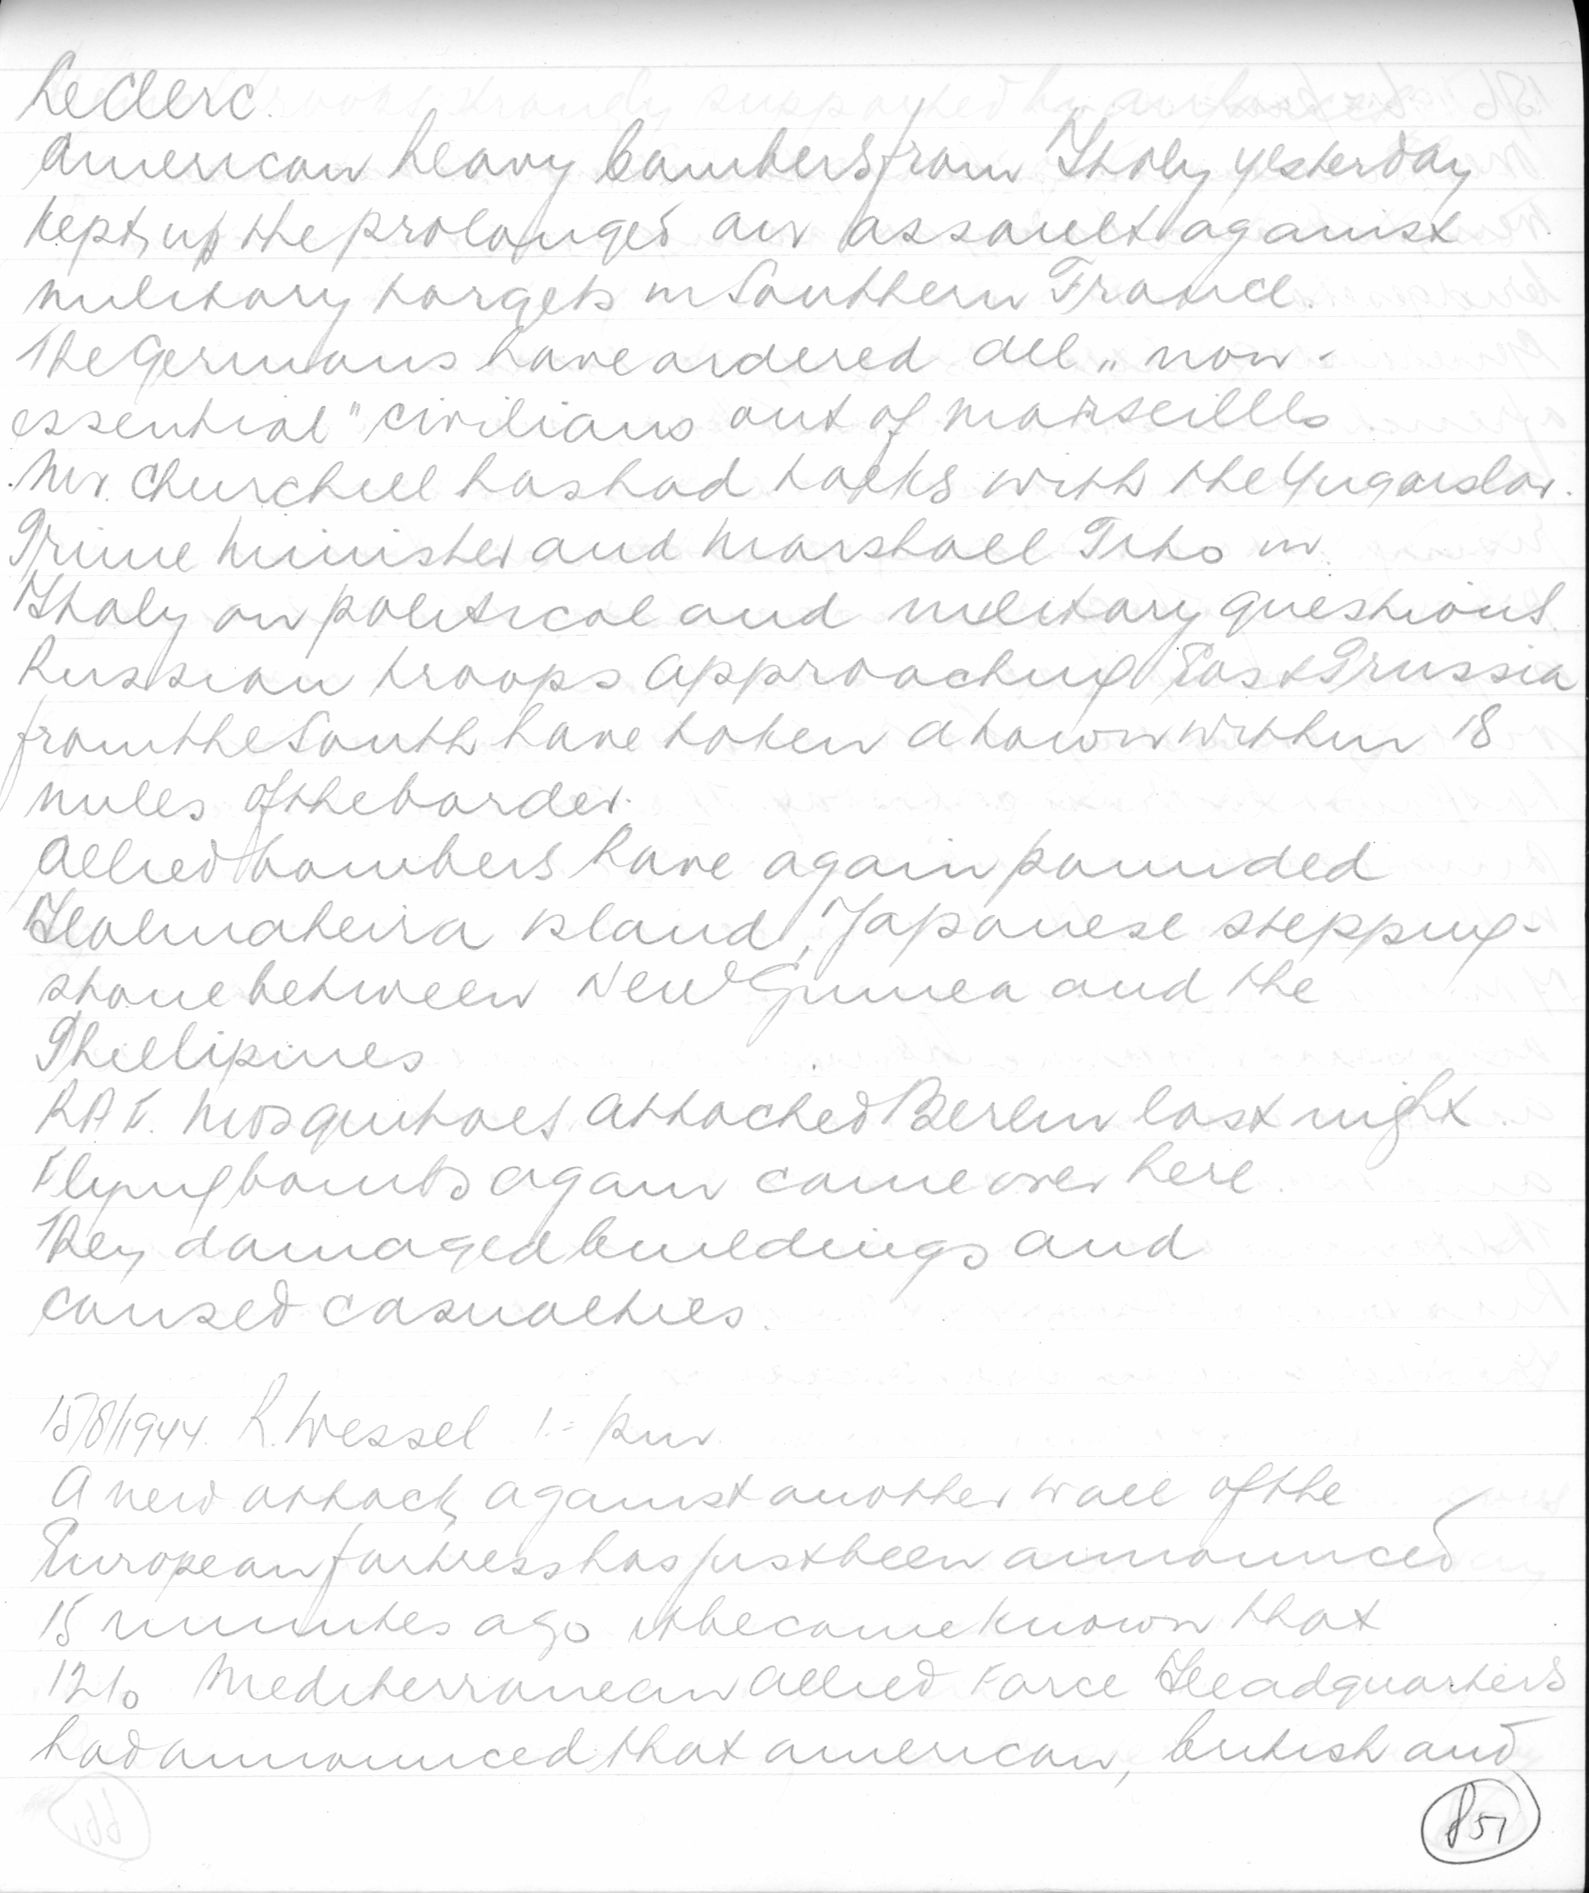 Leclerc.
American heavy bombers from Italy yesterday
kept up the prolonged air assault against
military targets in Southern France.
The Germans have ordered all „non-
essential" civilians out of Marseilles
Mr. Churchill has had talks with the Yugoislav.
Prime Minister and Marshall Tito in
Italy on political and military questions.
Russian troops approaching East Prussia
from the South have taken a town within 18
miles of the border.
Allied bombers have again pounded
Halmaheira island, Japanese stepping-
stone between New Guinea and the
Phillipines
RAF. Mosquitoes attacked Berlin last night.
Flying bombs again came over here.
They damaged buildings and
caused casualties.
15/8/1944. R. Wessel 1.= pm
A new attack against another wall of the
European fortress has just been announced
15 minutes ago it became known that
1210 Mediterranean Allied Force Headquarters
had announced that american, british and
851